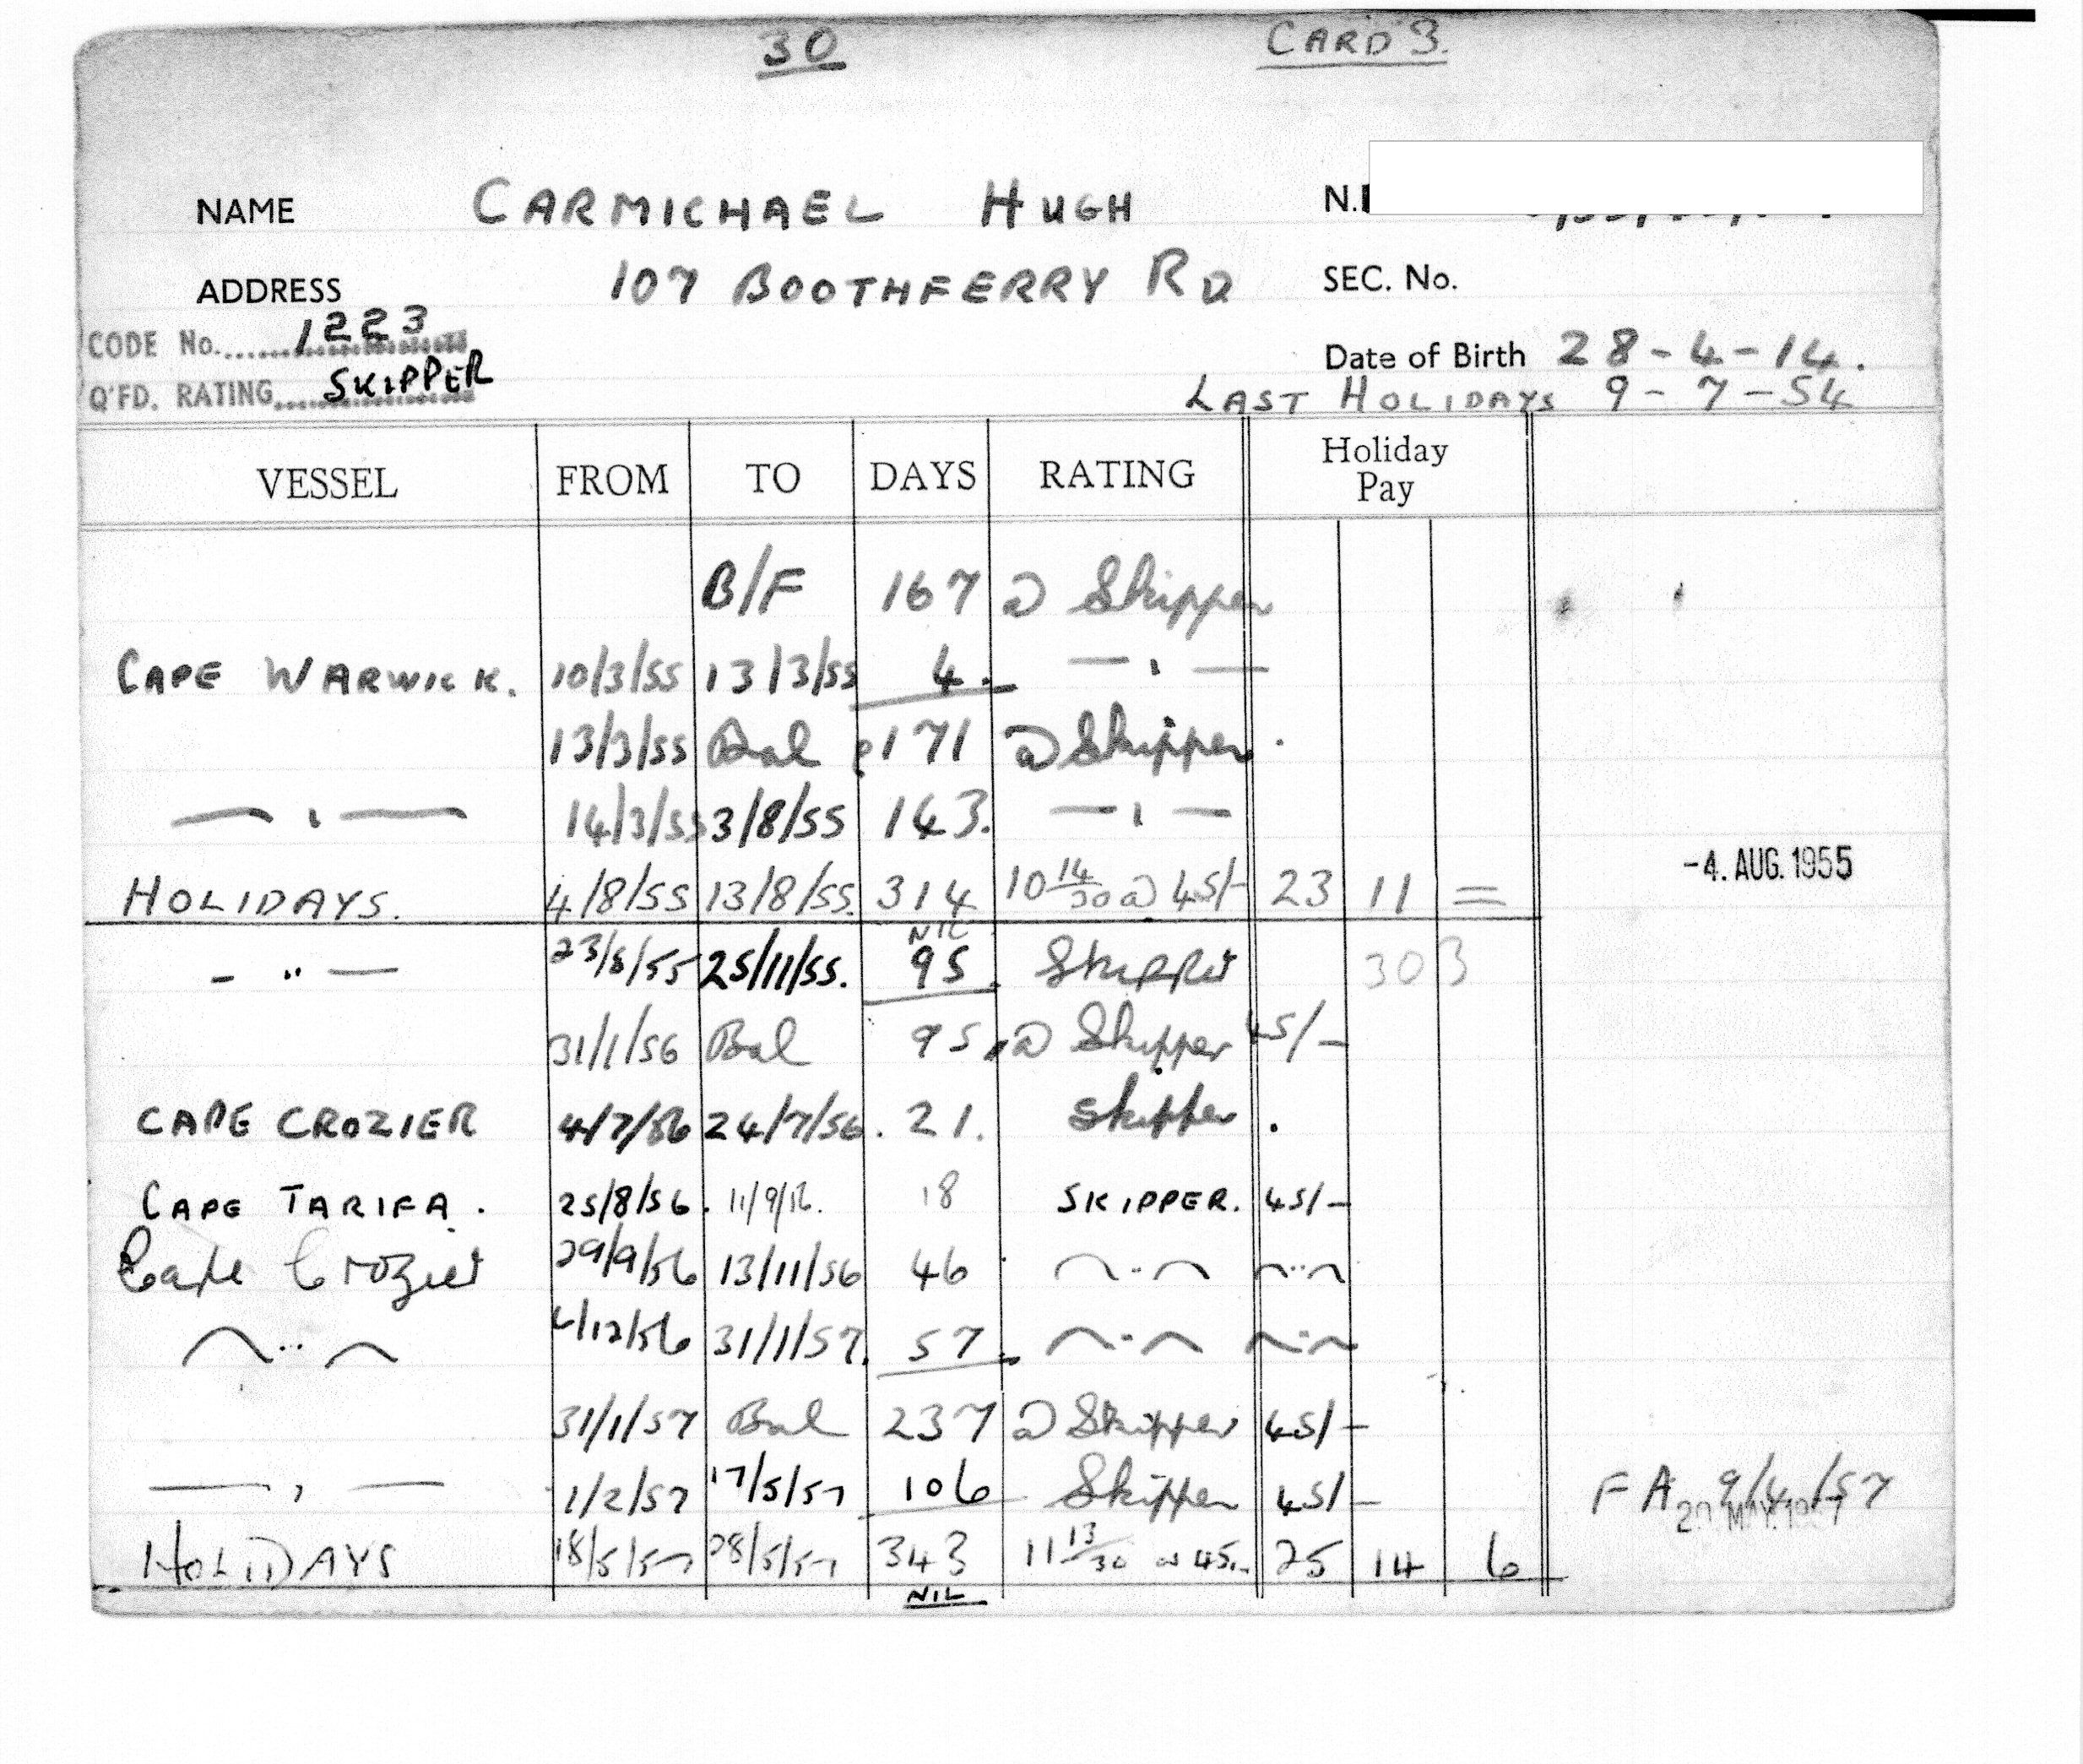 30 CARD 3.
NAME CARMICHAEL HUGH N.I
ADDRESS 107 BOOTHFERRY RD SEC. No.
CODE No. 1223
Date of Birth 28-4-14.
Q'FD. RATING SKIPPER
LAST HOLIDAYS 9-7-54
VESSEL FROM TO DAYS RATING Holiday Pay
B/F 167 @ Skipper
CAPE WARWICK. 10/3/55 13/3/55 4. — " —
13/3/55 Bal 171 @ Skipper.
— " — 14/3/55 3/8/55 143. — " —
HOLIDAYS. 4/8/55 13/8/55. 314 10 14/30 @ 45/- 23 11 = -4. AUG. 1955
NIL
- " — 23/8/55 25/11/55. 95. Skipper 303
31/1/56 Bal 95 @ Skipper 45/-
CAPE CROZIER 4/7/56 24/7/56. 21. Skipper.
CAPE TARIFA. 25/8/56. 11/9/56. 18 SKIPPER. 45/-
Cape Crozier 29/9/56 13/11/56 46 — " — — " —
— " — 6/12/56 31/1/57. 57. — " — — " —
31/1/57 Bal 237 @ Skipper 45/-
— " — 1/2/57 17/5/57 106 Skipper 45/- FA 9/4/57
20 MAY 1957
HOLIDAYS 18/5/57 28/5/57 343 11 13/30 @ 45. 25 14 6
NIL